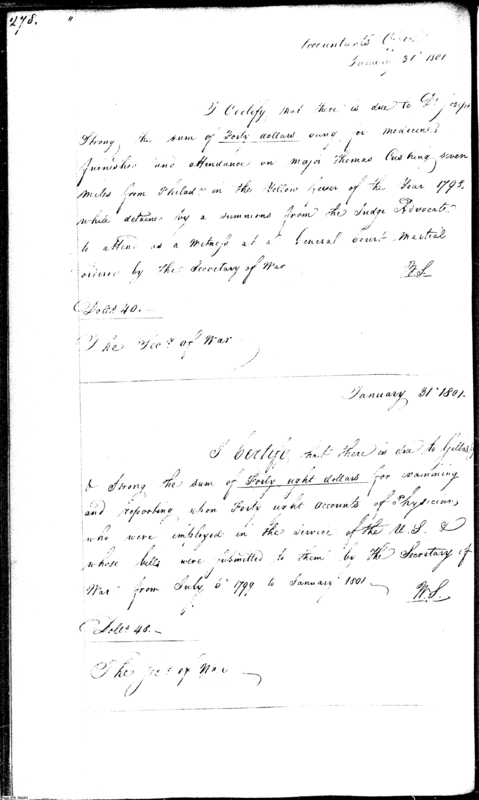 278.
Accountants Office
January 31st 1801
I Certify that there is due to Dr. Joseph
Strong, the sum of Forty dollars being for medicines
furnished and attendance on major Thomas Cushing, seven
miles from Philada. in the Yellow fever of the Year 1798.
while detained by a summons from the Judge Advocate
to attend as a Witness at a General Court Martial
ordered by the Secretary of War
W.S.
Dolls. 40.—
The Secy. of War
January 31st 1801.
I Certify that there is due to
& Strong the sum of Forty eight dollars for examining
and reporting upon Forty eight accounts of Physicians,
who were employed in the service of the U.S. &
whose bills were submitted to them by the Secretary of
War from July 6th 1799 to January 1801
W.S.
Dolls. 48.—
The Secy. of War